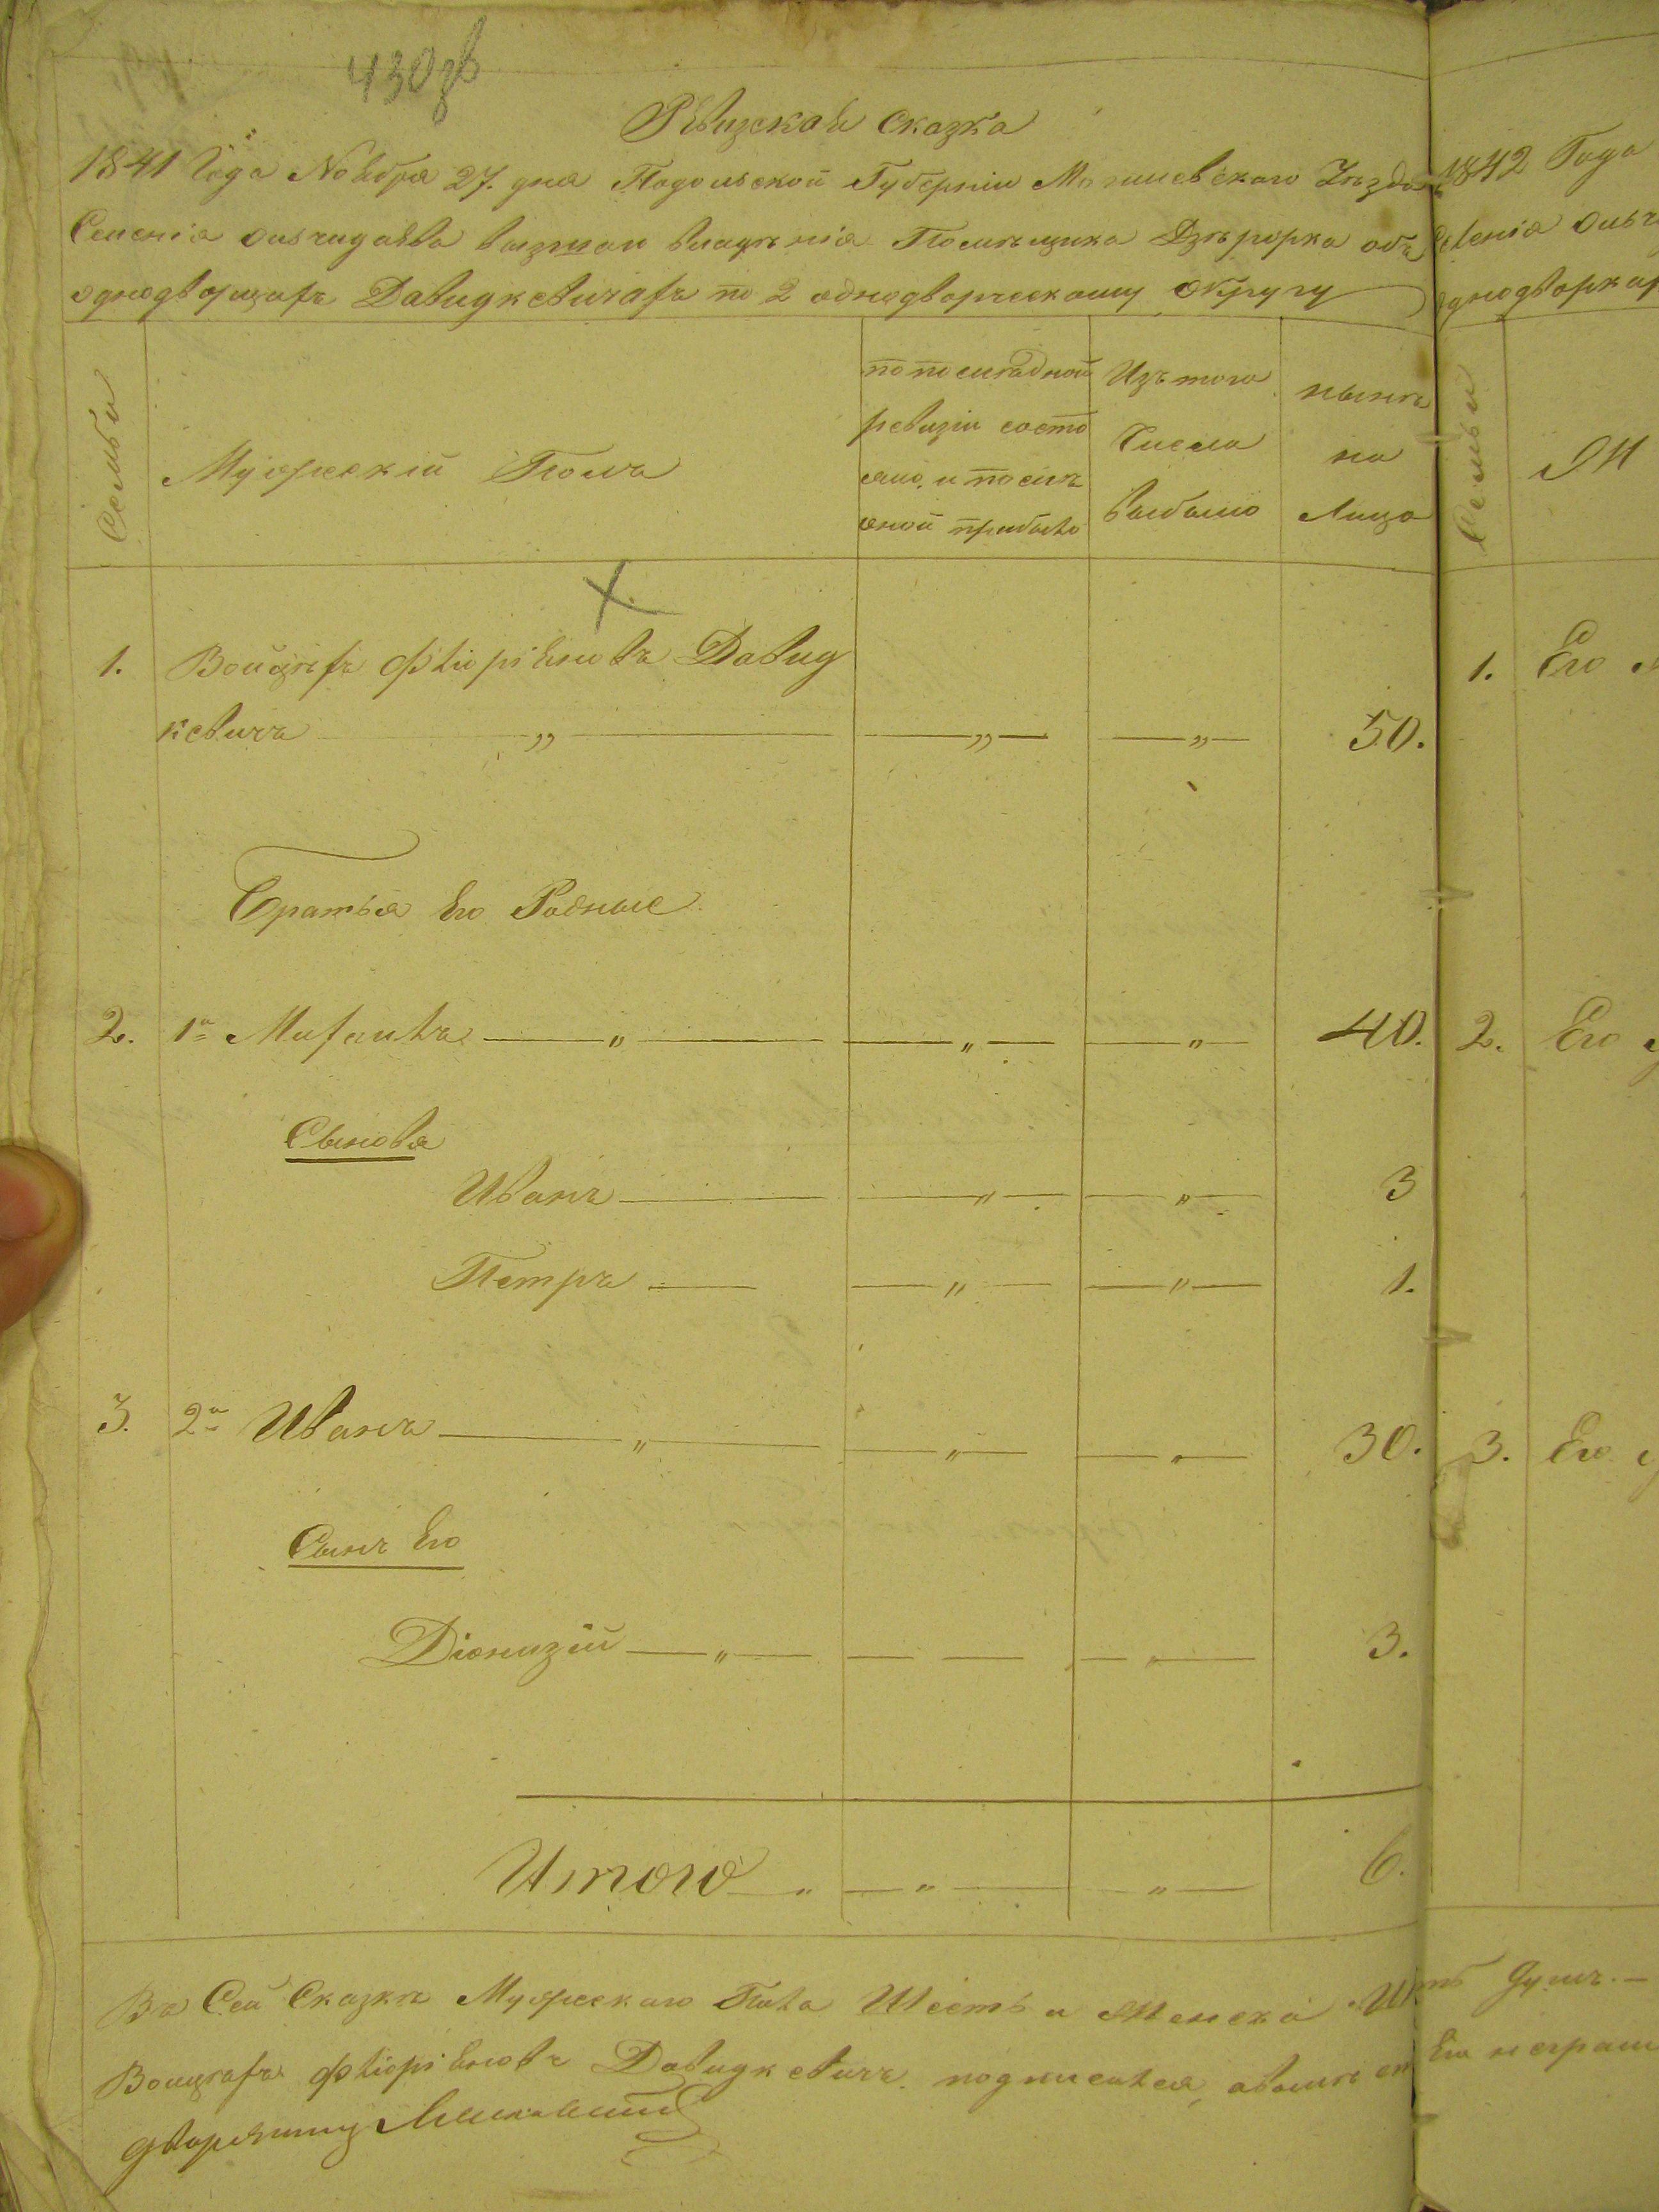 430 зв
Ревизская сказка
1841 Года Ноября 27. дня Подольской Губерніи Могилевскаго Уезда
Селенія владѣнія Помѣщика объ
однодворцахъ Давидкевичахъ по 2 однодворческому Округу
1842 Года
Селенія
однодворкахъ
Семьи
Мужескій Полъ
по последней
ревизіи состо
яло, и послѣ
оной прибыло
Изъ того
Числа
выбыло
нынѣ
на
Лицо
Семьи
X
1. Войцѣхъ Флоріяновъ Давид
кевичъ „ „ „ 50.
1. Его
Братья Его Родные
2. 1й Михаилъ „ „ „ 40.
2. Его
Сыновья
Иванъ „ „ 3
Петръ „ „ 1.
3. 2й Иванъ „ „ „ 30.
3. Его
Сынъ Его
Діонизій „ „ 3.
Итого „ „ „ 6.
Въ Сей Сказкѣ Мужескаго Пола Шесть и Женска душъ. —
Войцехъ Флоріяновъ Давидкевичъ подписался, а вместо Его неграм
дворянинъ